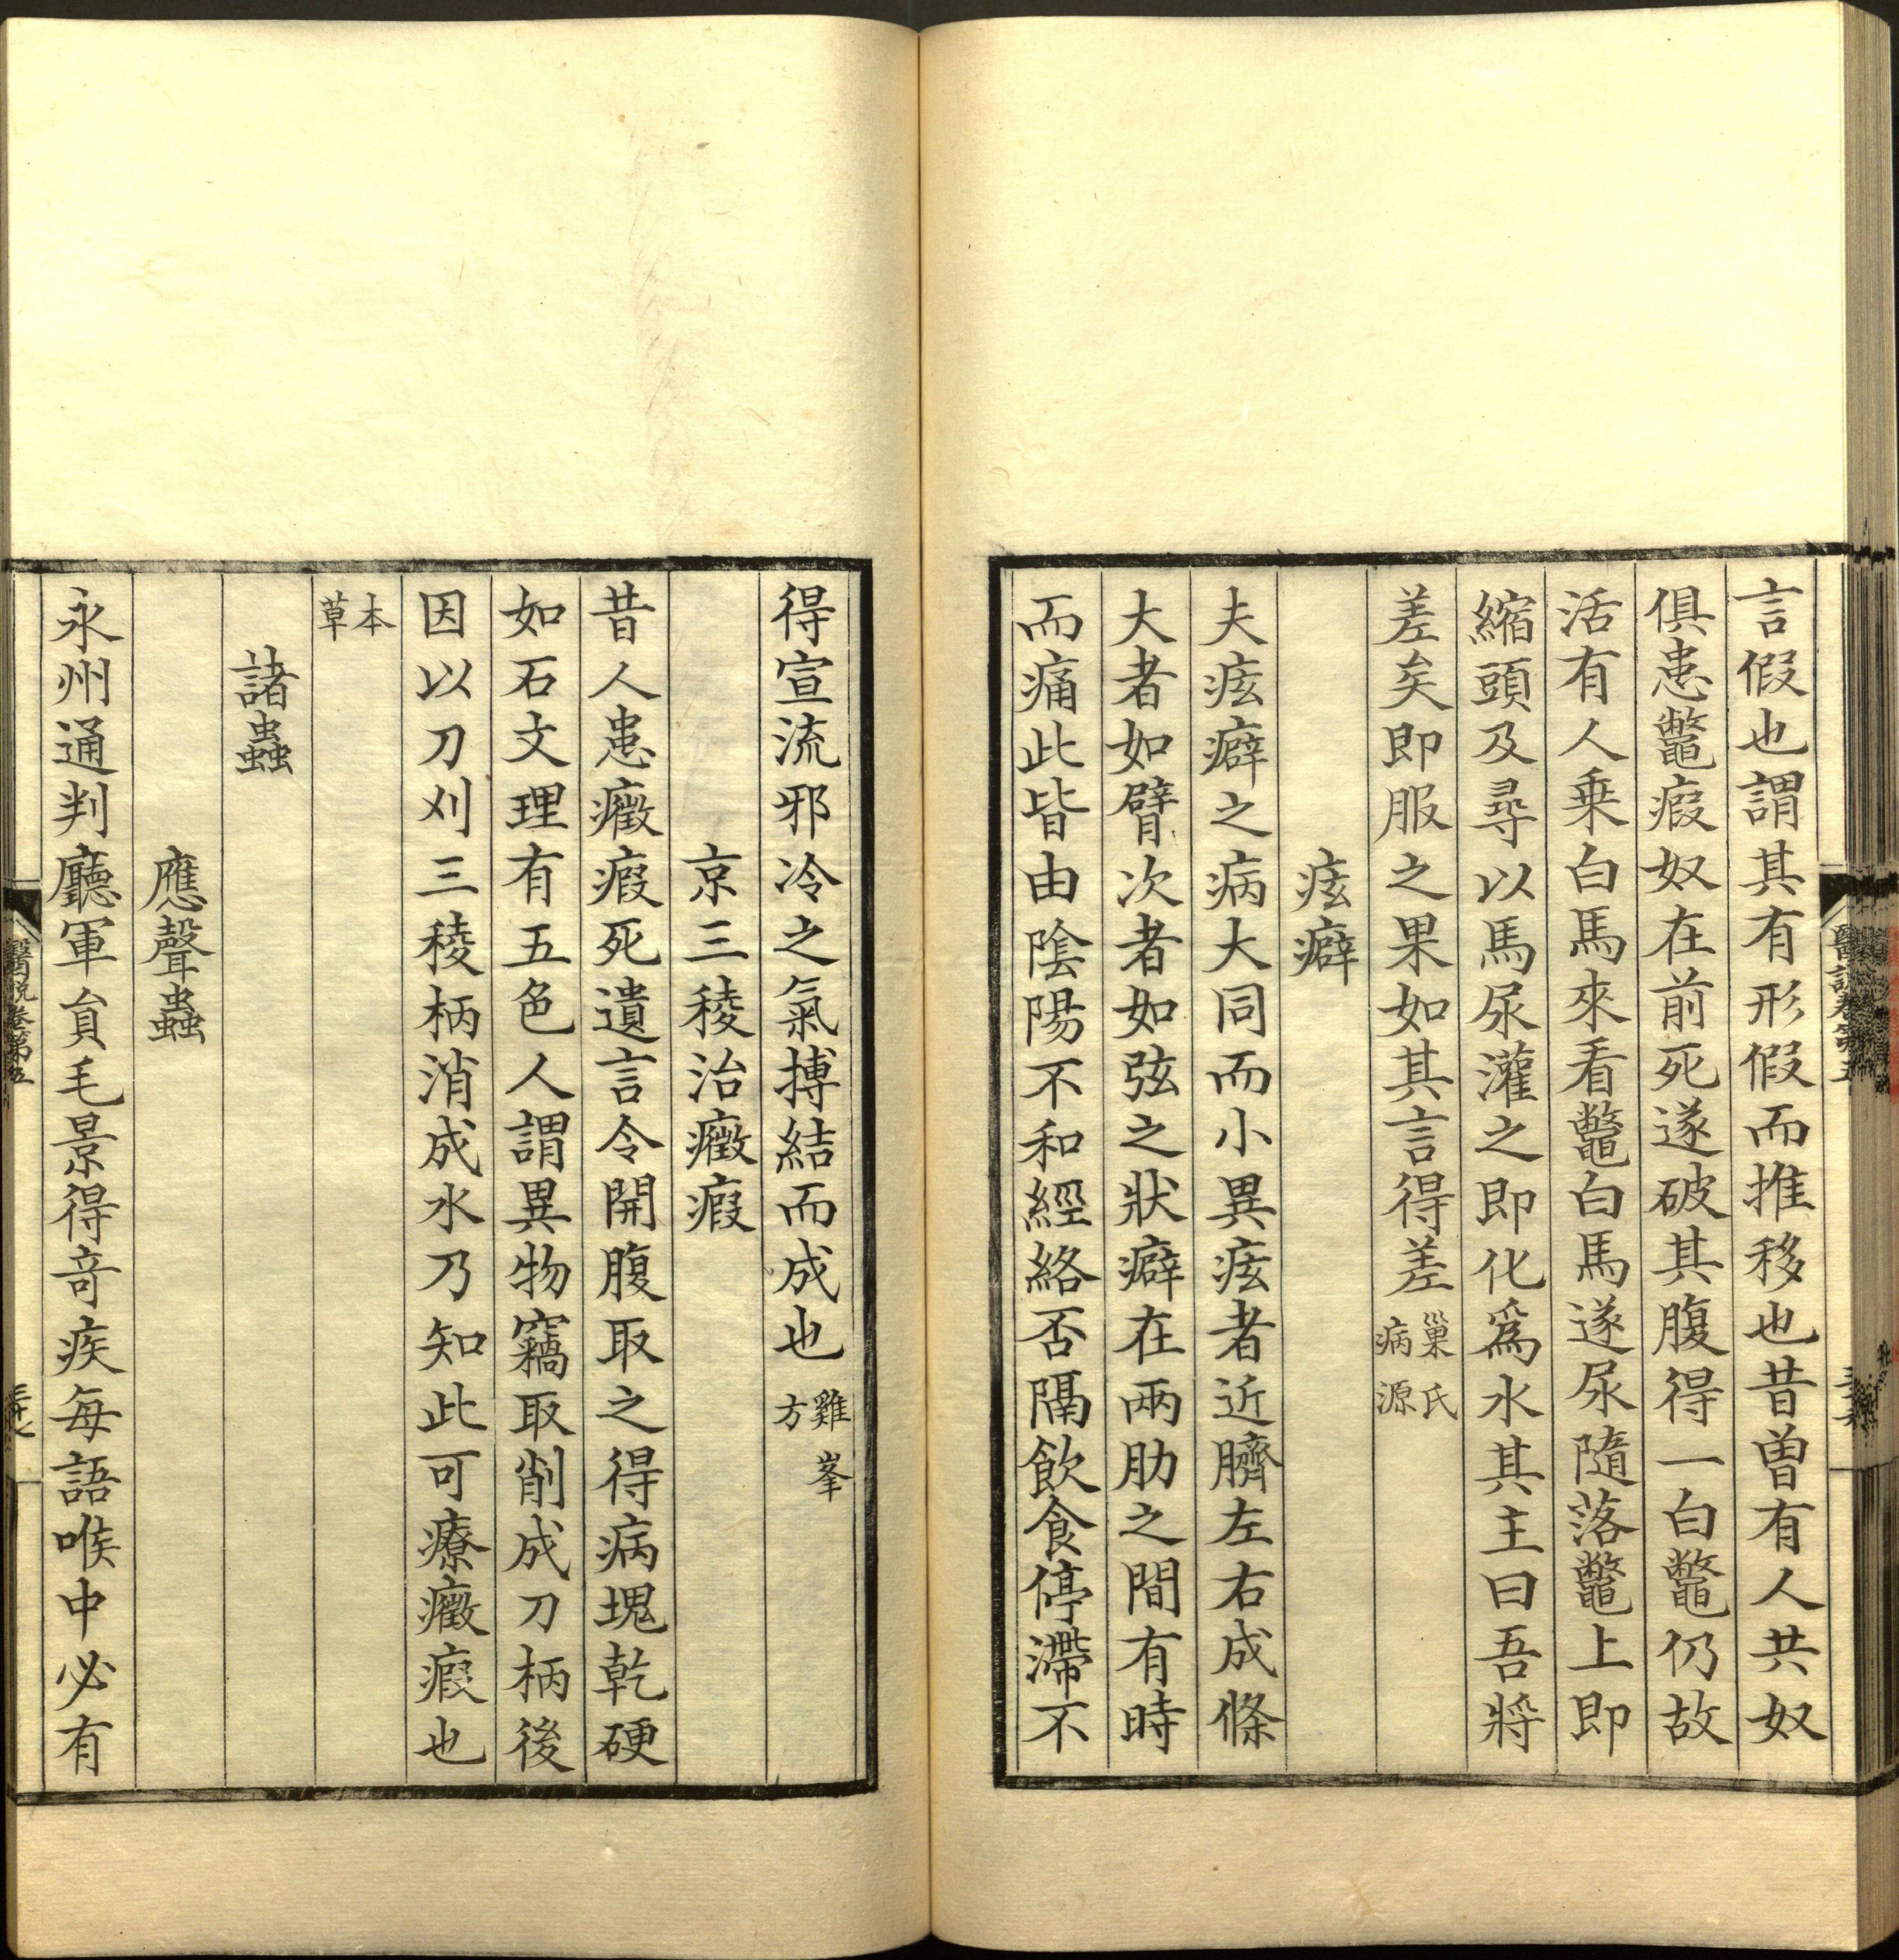 言假也謂其有形假而推移也昔曽有人共奴
俱患鼈瘕奴在前死遂破其腹得一白鼈仍故
活有人乗白馬來看鼈白馬遂尿隨落鼈上即
縮頭及尋以馬尿灌之即化爲水其主曰吾將
差矣即服之果如其言得差巢氏病源
痃癖
夫痃癖之病大同而小異痃者近臍左右成條
大者如臂次者如弦之狀癖在兩肋之間有時
而痛此皆由陰陽不和經絡否隔飲食停滯不
得宣流邪冷之氣搏結而成也雞峯方
京三稜治癥瘕
昔人患癥瘕死遺言令開腹取之得病塊乾硬
如石文理有五色人謂異物竊取削成刀柄後
因以刀刈三稜柄消成水乃知此可療癥瘕也
本草
諸蟲
應聲蟲
永州通判廳軍負毛景得竒疾每語喉中必有
醫說卷第五
三十七